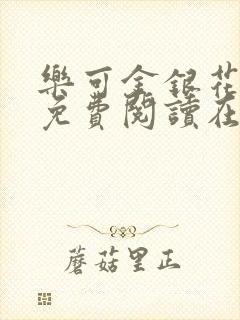 樂可金銀花
免費閱讀在
蘑菇里正